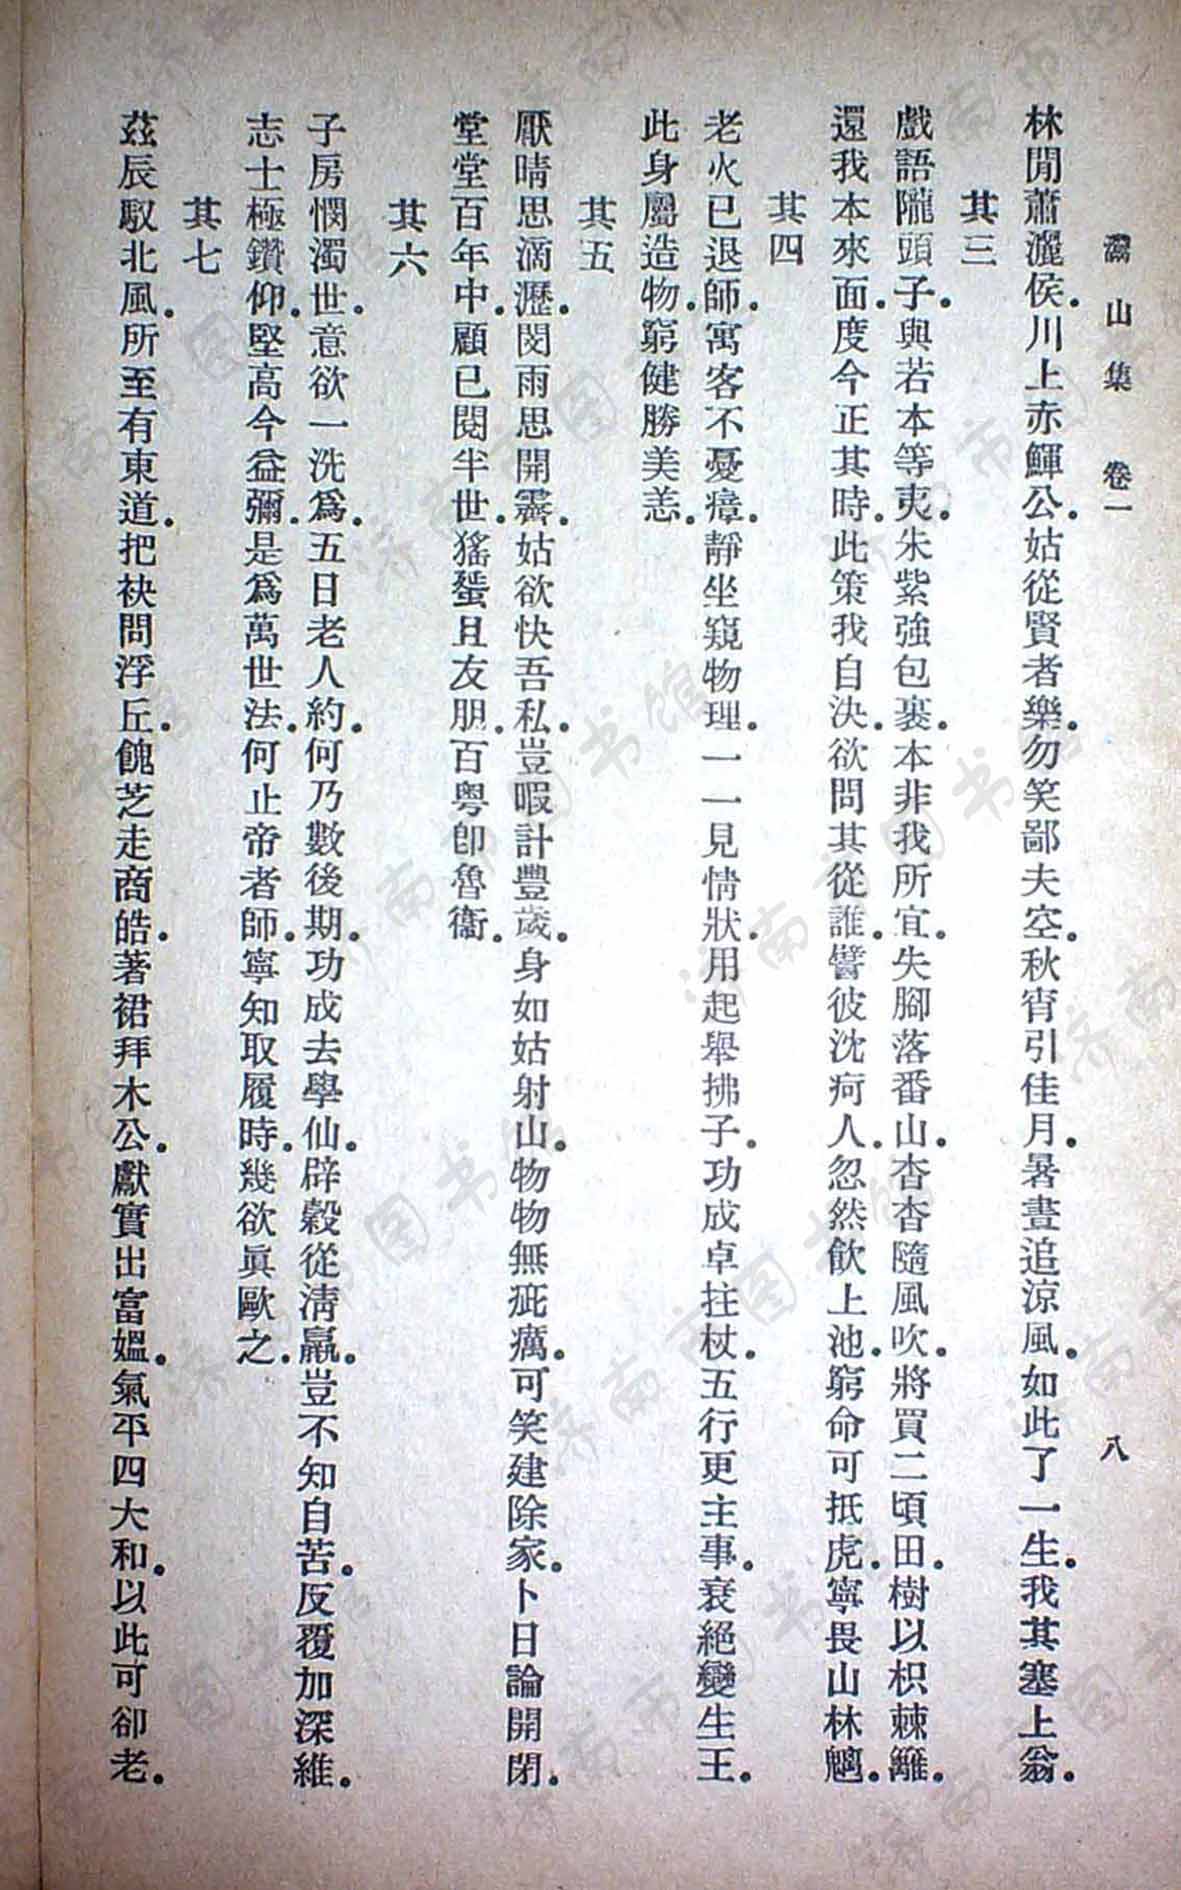 灊山集 卷一 八
林閒蕭灑侯。川上赤鯶公。姑從賢者樂。勿笑鄙夫空。秋宵引佳月。暑晝追涼風。如此了一生。我其塞上翁。
其三
戲語隴頭子。與若本等夷。朱紫強包裹。本非我所宜。失腳落番山。杳杳隨風吹。將買二頃田。樹以枳棘籬。
還我本來面。度今正其時。此策我自決。欲問其從誰。譬彼沈疴人。忽然飲上池。窮命可抵虎。寧畏山林魑。
其四
老火已退師。寓客不憂瘴。靜坐窺物理。一一見情狀。用起舉拂子。功成卓拄杖。五行更主事。衰絕變生王。
此身屬造物。窮健勝美恙。
其五
厭晴思滴瀝。閔雨思開霽。姑欲快吾私。豈暇計豐歲。身如姑射山。物物無疵癘。可笑建除家。卜日論開閉。
堂堂百年中。顧已閱半世。猺蜑且友朋。百粵卽魯衞。
其六
子房憫濁世。意欲一洗爲。五日老人約。何乃數後期。功成去學仙。辟穀從淸羸。豈不知自苦。反覆加深維。
志士極鑽仰。堅高今益彌。是爲萬世法。何止帝者師。寧知取履時。幾欲眞歐之。
其七
茲辰馭北風。所至有東道。把袂問浮丘。餽芝走商皓。著裙拜木公。獻實出富媼。氣平四大和。以此可卻老。